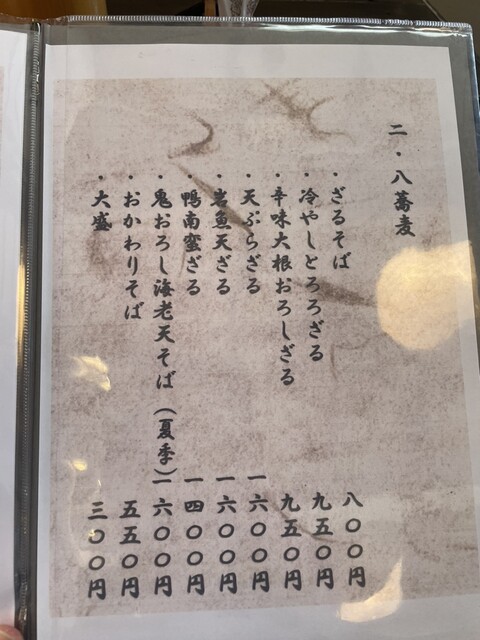 二・八蕎麦
・ざるそば 八〇〇円
・冷やしとろろざる 九五〇円
・辛味大根おろしざる 九五〇円
・天ぷらざる 一六〇〇円
・岩魚天ざる 一六〇〇円
・鴨南蛮ざる 一四〇〇円
・鬼おろし海老天そば（夏季）一六〇〇円
・おかわりそば 五五〇円
・大盛 三〇〇円